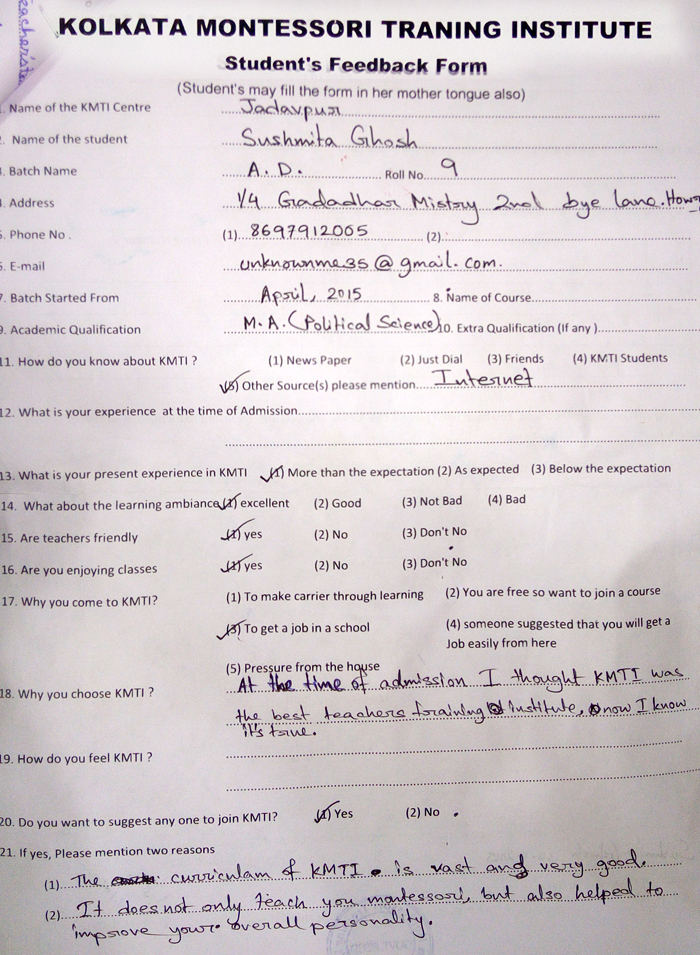 eacherstr
KOLKATA MONTESSORI TRANING INSTITUTE
Student's Feedback Form
(Student's may fill the form in her mother tongue also)
1. Name of the KMTI Centre Jadavpur
2. Name of the student Sushmita Ghosh
3. Batch Name A. D. Roll No 9
4. Address 1/4 Gradadhar Mistry 2nd bye lane. Howr
5. Phone No. (1) 8697912005 (2)
6. E-mail unknownme35@gmail.com.
7. Batch Started From April, 2015 8. Name of Course
9. Academic Qualification M.A. (Political Science) 10. Extra Qualification (If any )
11. How do you know about KMTI ? (1) News Paper (2) Just Dial (3) Friends (4) KMTI Students
(5) Other Source(s) please mention Internet
12. What is your experience at the time of Admission
13. What is your present experience in KMTI (1) More than the expectation (2) As expected (3) Below the expectation
14. What about the learning ambiance (1) excellent (2) Good (3) Not Bad (4) Bad
15. Are teachers friendly (1) yes (2) No (3) Don't No
16. Are you enjoying classes (1) yes (2) No (3) Don't No
17. Why you come to KMTI? (1) To make carrier through learning (2) You are free so want to join a course
(3) To get a job in a school (4) someone suggested that you will get a
Job easily from here
(5) Pressure from the house
18. Why you choose KMTI ? At the time of admission I thought KMTI was
the best teachers training institute, now I know
it's true.
19. How do you feel KMTI ?
20. Do you want to suggest any one to join KMTI? (1) Yes (2) No
21. If yes, Please mention two reasons
(1) The curriculam of KMTI is vast and very good.
(2) It does not only teach you montessori, but also helped to
improve your overall personality.